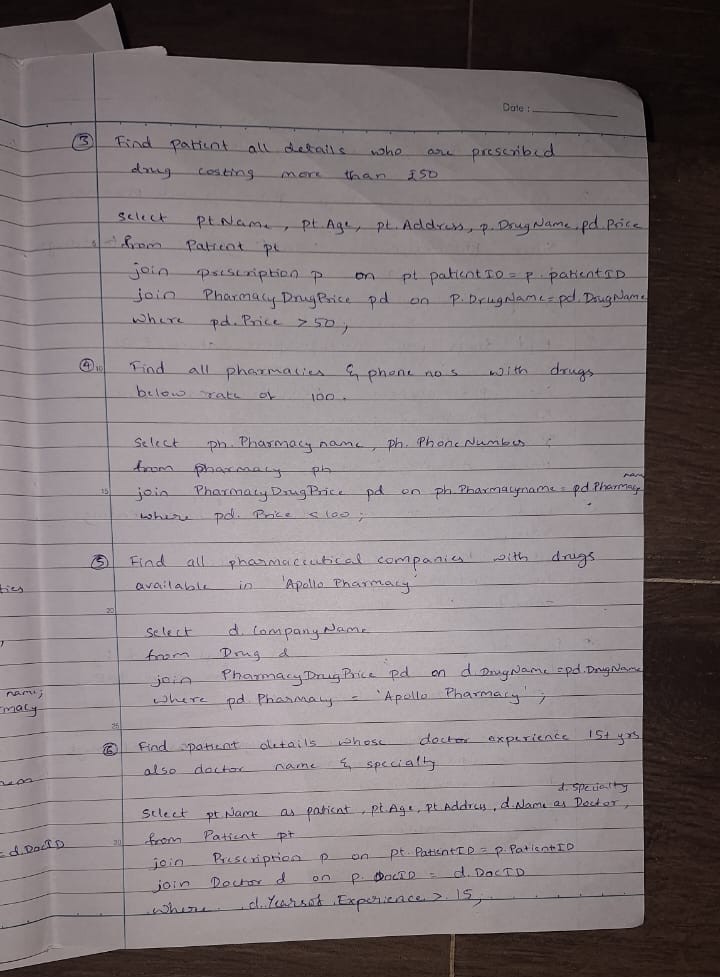 Date :
③ Find patient all details who are prescribed
drug costing more than £50
Select pt.Name, pt.Age, pt.Address, p.DrugName, pd.Price
from Patient pt
join prescription p on pt.patientID = p.patientID
join PharmacyDrugPrice pd on P.DrugName = pd.DrugName
where pd.Price > 50;
④ 10 Find all pharmacies & phone nos with drugs
below rate of 100.
Select ph.Pharmacyname, ph.PhoneNumber
from pharmacy ph
name
15 join PharmacyDrugPrice pd on ph.Pharmacyname = pd.Pharmacy
where pd.Price ≤ 100;
⑤ Find all pharmaceutical companies with drugs
available in 'Apollo Pharmacy'
ties
20
Select d.CompanyName
from Drug d
join PharmacyDrugPrice pd on d.DrugName = pd.DrugName
where pd Pharmacy = 'Apollo Pharmacy';
name;
macy
25
⑥ Find patient details whose doctor experience 15+ yrs
also doctor name & specialty
d.Specialty
Select pt.Name as patient, pt.Age, pt.Address, d.Name as Doctor,
from Patient pt
= d.DocID
join Prescription p on pt.PatientID = p.PatientID
join Doctor d on p.DocID = d.DocID
where d.YearsofExperience > 15;